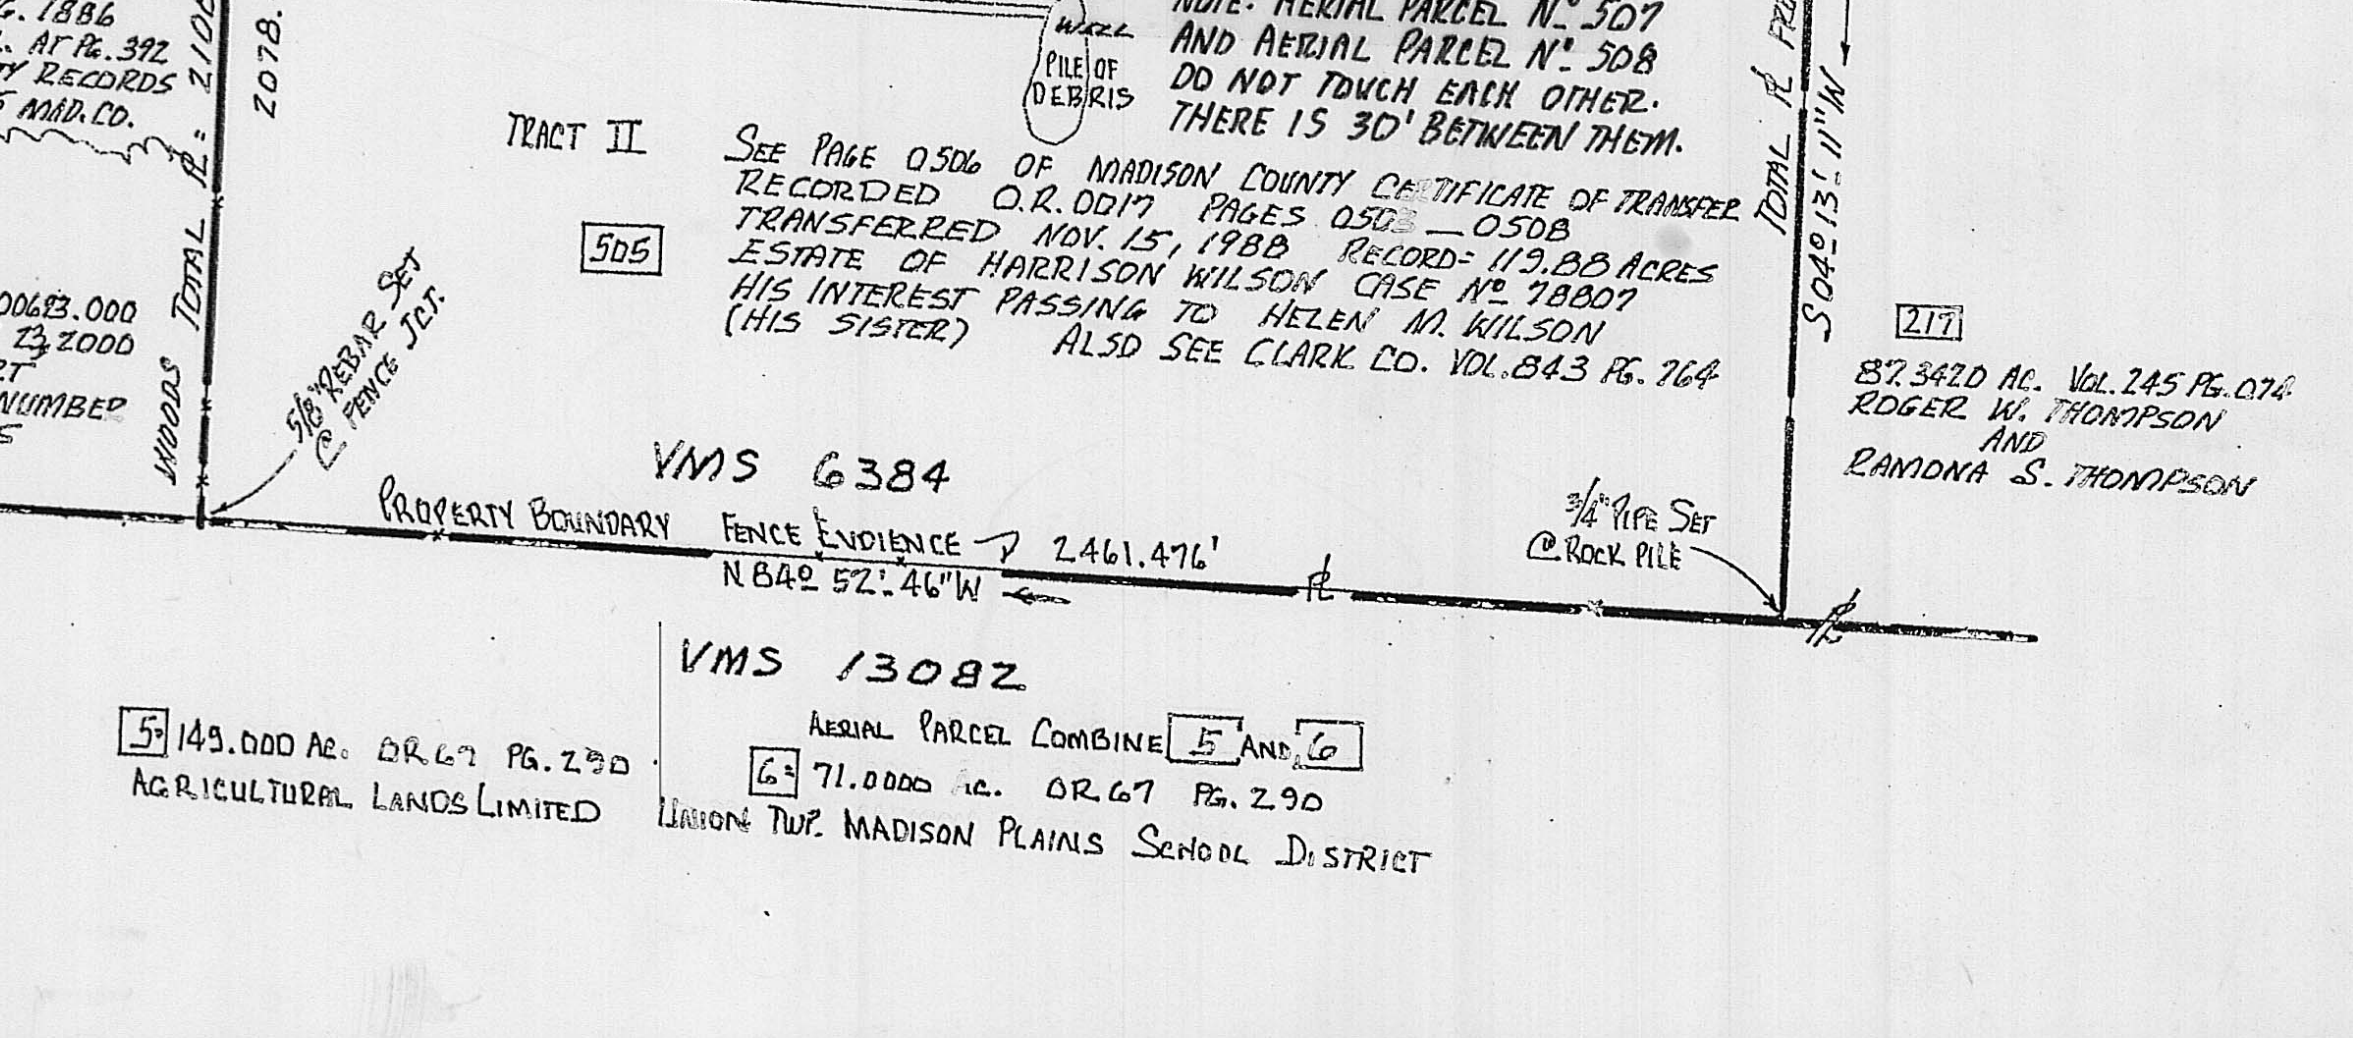 G. 1886
AT PG. 392
RECORDS
MAD. CO.
TOTAL ⅊ = 2106
2078.
WELL
PILE OF
DEBRIS
NOTE: AERIAL PARCEL Nº 507
AND AERIAL PARCEL Nº 508
DO NOT TOUCH EACH OTHER.
THERE IS 30' BETWEEN THEM.
TRACT II
505
SEE PAGE 0506 OF MADISON COUNTY CERTIFICATE OF TRANSFER
RECORDED O.R. 0017 PAGES 0503 — 0508
TRANSFERRED NOV. 15, 1988 RECORD = 119.88 ACRES
ESTATE OF HARRISON WILSON CASE Nº 78807
HIS INTEREST PASSING TO HELEN M. WILSON
(HIS SISTER) ALSO SEE CLARK CO. VOL. 843 PG. 764
TOTAL ⅊
S 04º 13' 11" W
00683.000
23, 2000
NUMBER
WOODS
5/8" REBAR SET
@ FENCE JCT.
217
87.3420 AC. VOL. 245 PG. 074
ROGER W. THOMPSON
AND
RAMONA S. THOMPSON
VMS 6384
PROPERTY BOUNDARY FENCE EVDIENCE 2461.476'
N 84º 52' 46" W
⅊
3/4" PIPE SET
@ ROCK PILE
⅊
VMS 13082
AERIAL PARCEL COMBINE 5 AND 6
5 = 149.000 AC. OR 67 PG. 290
AGRICULTURAL LANDS LIMITED
6 = 71.0000 AC. OR 67 PG. 290
UNION TWP. MADISON PLAINS SCHOOL DISTRICT